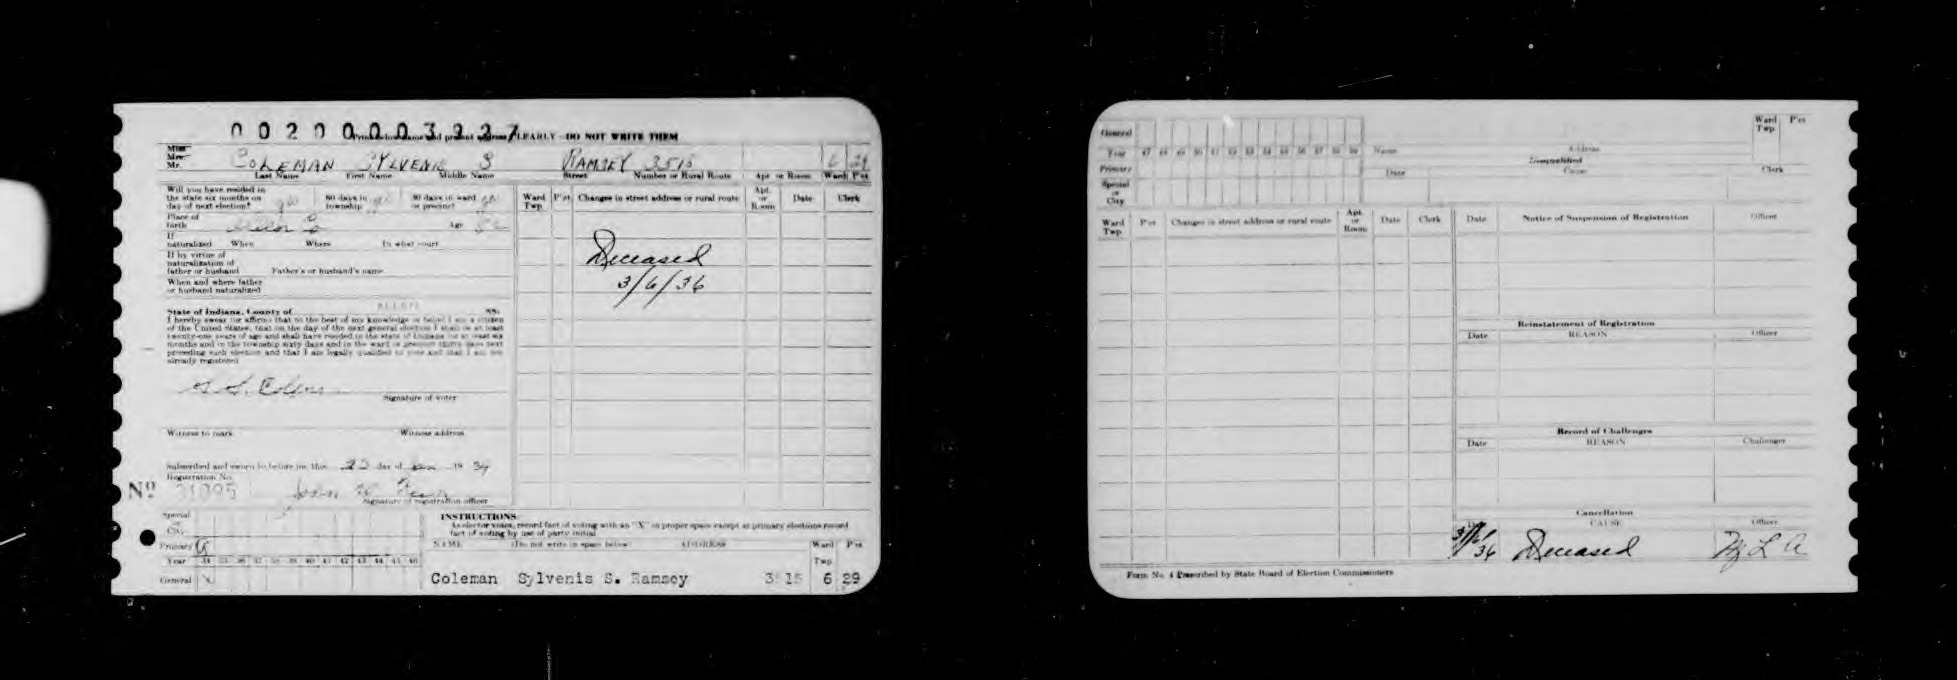 00200003927
Print below name and present address CLEARLY—DO NOT WRITE THEM
Miss
Mrs.
Mr. COLEMAN SYLVENIS S RAMSEY 3515 6 29
Last Name First Name Middle Name Street Number or Rural Route Apt. or Room Ward P'ct
Will you have resided in
the state six months on
day of next election? yes 60 days in township yes 30 days in ward or precinct yes
Place of
birth Age
If
naturalized When Where In what court
If by virtue of
naturalization of
father or husband Father's or husband's name
When and where father
or husband naturalized
ALLEN
State of Indiana, County of SS:
I hereby swear (or affirm) that to the best of my knowledge or belief I am a citizen
of the United States, that on the day of the next general election I shall be at least
twenty-one years of age and shall have resided in the state of Indiana for at least six
months and in the township sixty days and in the ward or precinct thirty days next
preceding such election and that I am legally qualified to vote and that I am not
already registered
Signature of voter
Witness to mark Witness address
Subscribed and sworn to before me this 23 day of 19 34
Registration No.
Nº 31095
Signature of registration officer
Special
City
Primary
Year 34 35 36 37 38 39 40 41 42 43 44 45 46
General X
INSTRUCTIONS
As elector votes, record fact of voting with an "X" in proper space except at primary elections record
fact of voting by use of party initial
NAME (Do not write in space below) ADDRESS Ward Twp. P'ct
Coleman Sylvenis S. Ramsey 3515 6 29
Ward Twp. P'ct Changes in street address or rural route Apt. or Room Date Clerk
Deceased
3/6/36
General
Year 47 48 49 50 51 52 53 54 55 56 57 58 59
Primary
Special
or
City
Name Address Ward Twp. P'ct
Disqualified
Date Cause Clerk
Ward Twp. P'ct Changes in street address or rural route Apt. or Room Date Clerk
Date Notice of Suspension of Registration Officer
Reinstatement of Registration
Date REASON Officer
Record of Challenges
Date REASON Challenger
Cancellation
Date CAUSE Officer
3/6/36 Deceased
Form No. 4 Prescribed by State Board of Election Commissioners